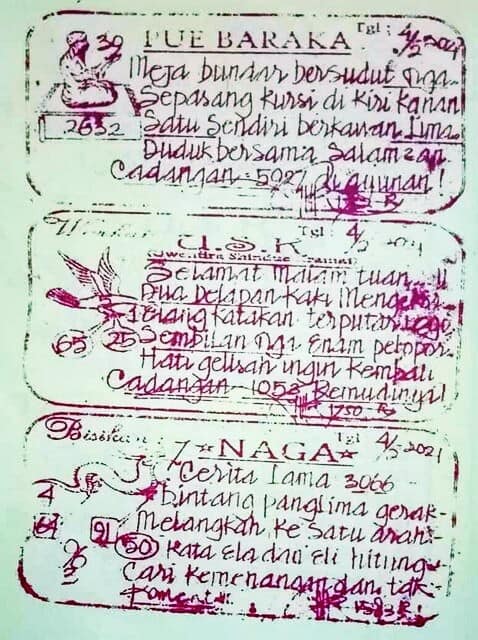 39 PUE BARAKA Tgl: 4/5-2021
Meja bundar bersudut tiga
Sepasang kursi di kiri kanan
2632 Satu Sendiri berkawan Lima
Duduk bersama Salaman
Cadangan - 5027 di ayunan!
U.S.K Tgl 4/5 2021
Selamat malam tuan
Dua Delapan kaki
Elang katakan terputar
65 25 Sembilan tiga Enam pelopor
Hati gelisah ingin kembali
Cadangan - 1053 Kemudinya!
1750
Bisikan: 7 ☆NAGA☆ Tgl 4/5-2021
Cerita lama 3066
4 bintang panglima gerak-
64 91 Melangkah ke satu arah-
50 kata ela dan eli hitung
Cari kemenangan dan tak-
Koment